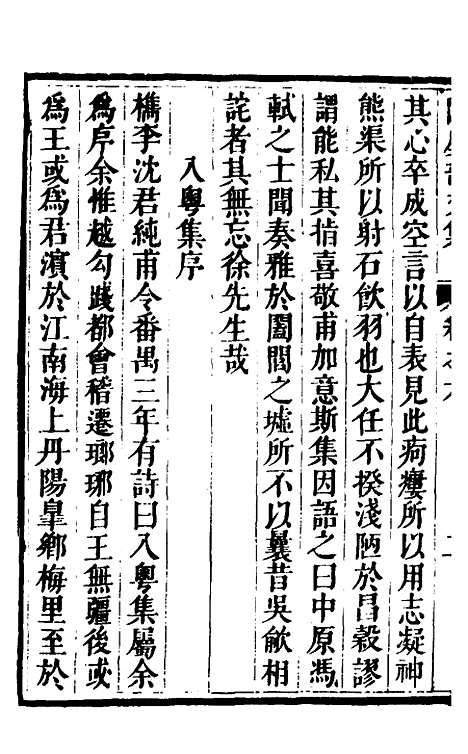 其心卒成空言以自表見此痀瘻所以用志凝神
熊渠所以射石飲羽也大任不揆淺陋於昌穀謬
謂能私其指喜敬甫加意斯集因語之曰中原馮
軾之士聞奏雅於闔閭之墟所不以曩昔吳歈相
詫者其無忘徐先生哉
入粵集序
檇李沈君純甫令番禺三年有詩曰入粵集屬余
為序余惟越勾踐都會稽遷瑯琊自王無疆後或
為王或為君濱於江南海上丹陽臯鄉梅里至於